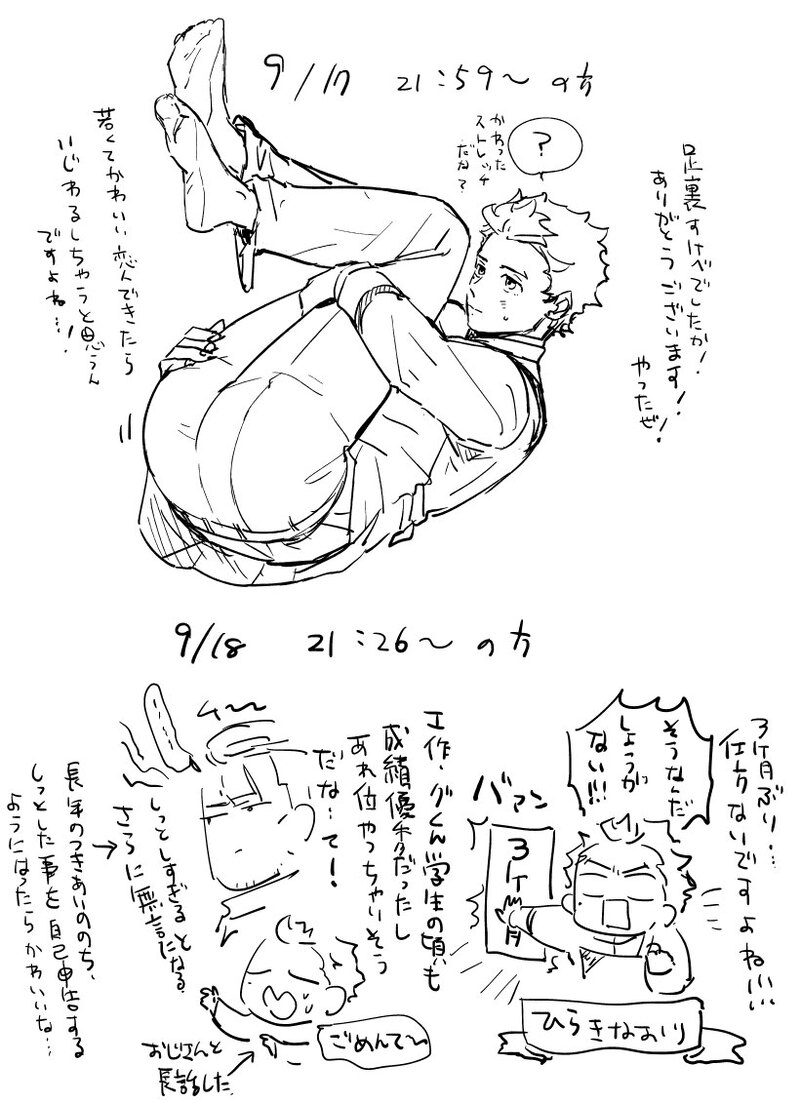 9/17 21:59〜の方
足裏すけべでしたか!
ありがとうございます!
やったぜ!
?
かわった
ストレッチ
だな?
若くてかわいい恋人できたら
いじわるしちゃうと思うん
ですよね…!
9/18 21:26〜の方
3ヶ月ぶり…
仕方ないですよね!!!
そうなんだ
しょうが
ない!!!
バァン
3ヶ月
ひらきなおり
工作・グくん学生の頃も
成績優秀だったし
あれ位やっちゃいそう
だな…て!
しっとしすぎると
さらに無言になる
長年のつきあいののち、
しっとした事を自己申告する
ようになったらかわいいな…
ごめんて〜
おじさんと
長話した